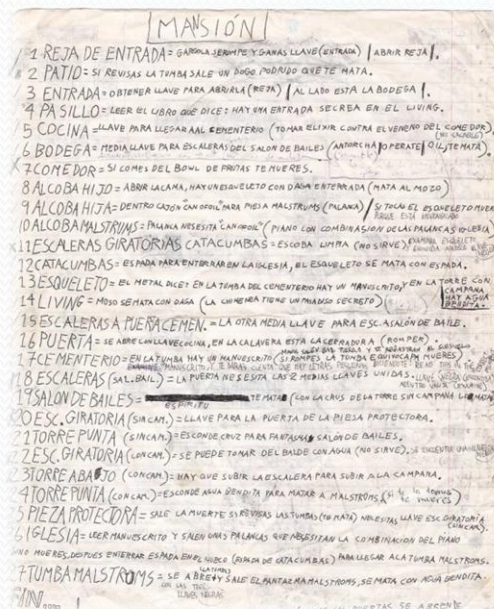 MANSIÓN
1 REJA DE ENTRADA = GARGOLA SE ROMPE Y GANAS LLAVE (ENTRADA) / ABRIR REJA /.
2 PATIO = SI REVISAS LA TUMBA SALE UN DOGO PODRIDO QUE TE MATA.
3 ENTRADA = OBTENER LLAVE PARA ABRIRLA (REJA) / AL LADO ESTA LA BODEGA /.
4 PASILLO = LEER EL LIBRO QUE DICE: HAY UNA ENTRADA SECREA EN EL LIVING.
5 COCINA = LLAVE PARA LLEGAR AL CEMENTERIO (TOMAR ELIXIR CONTRA EL VENENO DEL COMEDOR)
6 BODEGA = MEDIA LLAVE PARA ESCALERAS DEL SALON DE BAILES (ANTORCHA / OPERATE TE MATA).
7 COMEDOR = SI COMES DEL BOWL DE FRUTAS TE MUERES.
8 ALCOBA HIJO = ABRIR LA CAMA, HAY UN ESQUELETO CON DAGA ENTERRADA (MATA AL MOZO)
9 ALCOBA HIJA = DENTRO CAJÓN "CANOPOLIC" PARA PIESA MALSTRUMS (PALANCA) / SI TOCAI EL ESQUELETO MUERES
PORQUE ESTÁ ENVENENADO
10 ALCOBA MALSTRUMS = PALANCA NESESITA "CANOPOLIC" (PIANO CON COMBINASION DE LAS PALANCAS IGLESIA)
11 ESCALERAS GIRATORIAS CATACUMBAS = ESCOBA LIMPIA (NO SIRVE).
12 CATACUMBAS = ESPADA PARA ENTERRAR EN LA IGLESIA, EL ESQUELETO SE MATA CON ESPADA.
13 ESQUELETO = EL METAL DICE: EN LA TUMBA DEL CEMENTERIO HAY UN MANUSCRITO, Y EN LA TORRE CON CAMPANA HAY AGUA BENDITA.
14 LIVING = MOSO SE MATA CON DAGA (LA CHIMENEA TIENE UN PASADISO SECRETO)
15 ESCALERAS A PUERA CEMEN. = LA OTRA MEDIA LLAVE PARA ESC. A SALON DE BAILE.
16 PUERTA = SE ABRE CON LLAVE COCINA, EN LA CALAVERA ESTA LA CERRADURA (ROMPER).
17 CEMENTERIO = EN LA TUMBA HAY UN MANUSCRITO (SI ROMPES LA TUMBA EQUIVOCADA MUERES)
18 ESCALERAS (SAL. BAIL) = LA PUERTA NESESITA LAS 2 MEDIAS LLAVES UNIDAS
19 SALON DE BAILES = ESPIRITU TE MATA (CON LA CRUS DE LA TORRE SIN CAMPANA LO MATAS)
20 ESC. GIRATORIA (SIN CAM.) = LLAVE PARA LA PUERTA DE LA PIESA PROTECTORA.
21 TORRE PUNTA (SIN CAM.) = ESCONDE CRUZ PARA FANTASMA SALON DE BAILES.
22 ESC. GIRATORIA (CON CAM.) = SE PUEDE TOMAR DEL BALDE CON AGUA (NO SIRVE).
23 TORRE ABAJO (CON CAM.) = HAY QUE SUBIR LA ESCALERA PARA SUBIR A LA CAMPANA.
24 TORRE PUNTA (CON CAM.) = ESCONDE AGUA BENDITA PARA MATAR A MALSTROMS (si te la tomas te mueres)
25 PIEZA PROTECTORA = SALE LA MUERTE SI REVISAS LAS TUMBAS (TE MATA) NECESITAS LLAVE ESC. GIRATORIA (SIN CAM).
26 IGLESIA = LEER MANUSCRITO Y SALEN UNAS PALANCAS QUE NESESITAN LA COMBINACION DEL PIANO
UNO MUERES, DESPUES ENTERRAR ESPADA EN EL HUECO (ESPADA DE CATACUMBAS) PARA LLEGAR A LA TUMBA MALSTROMS.
27 TUMBA MALSTROMS = SE ABRE Y SALE EL FANTAZMA MALSTROMS, SE MATA CON AGUA BENDITA.
FIN...